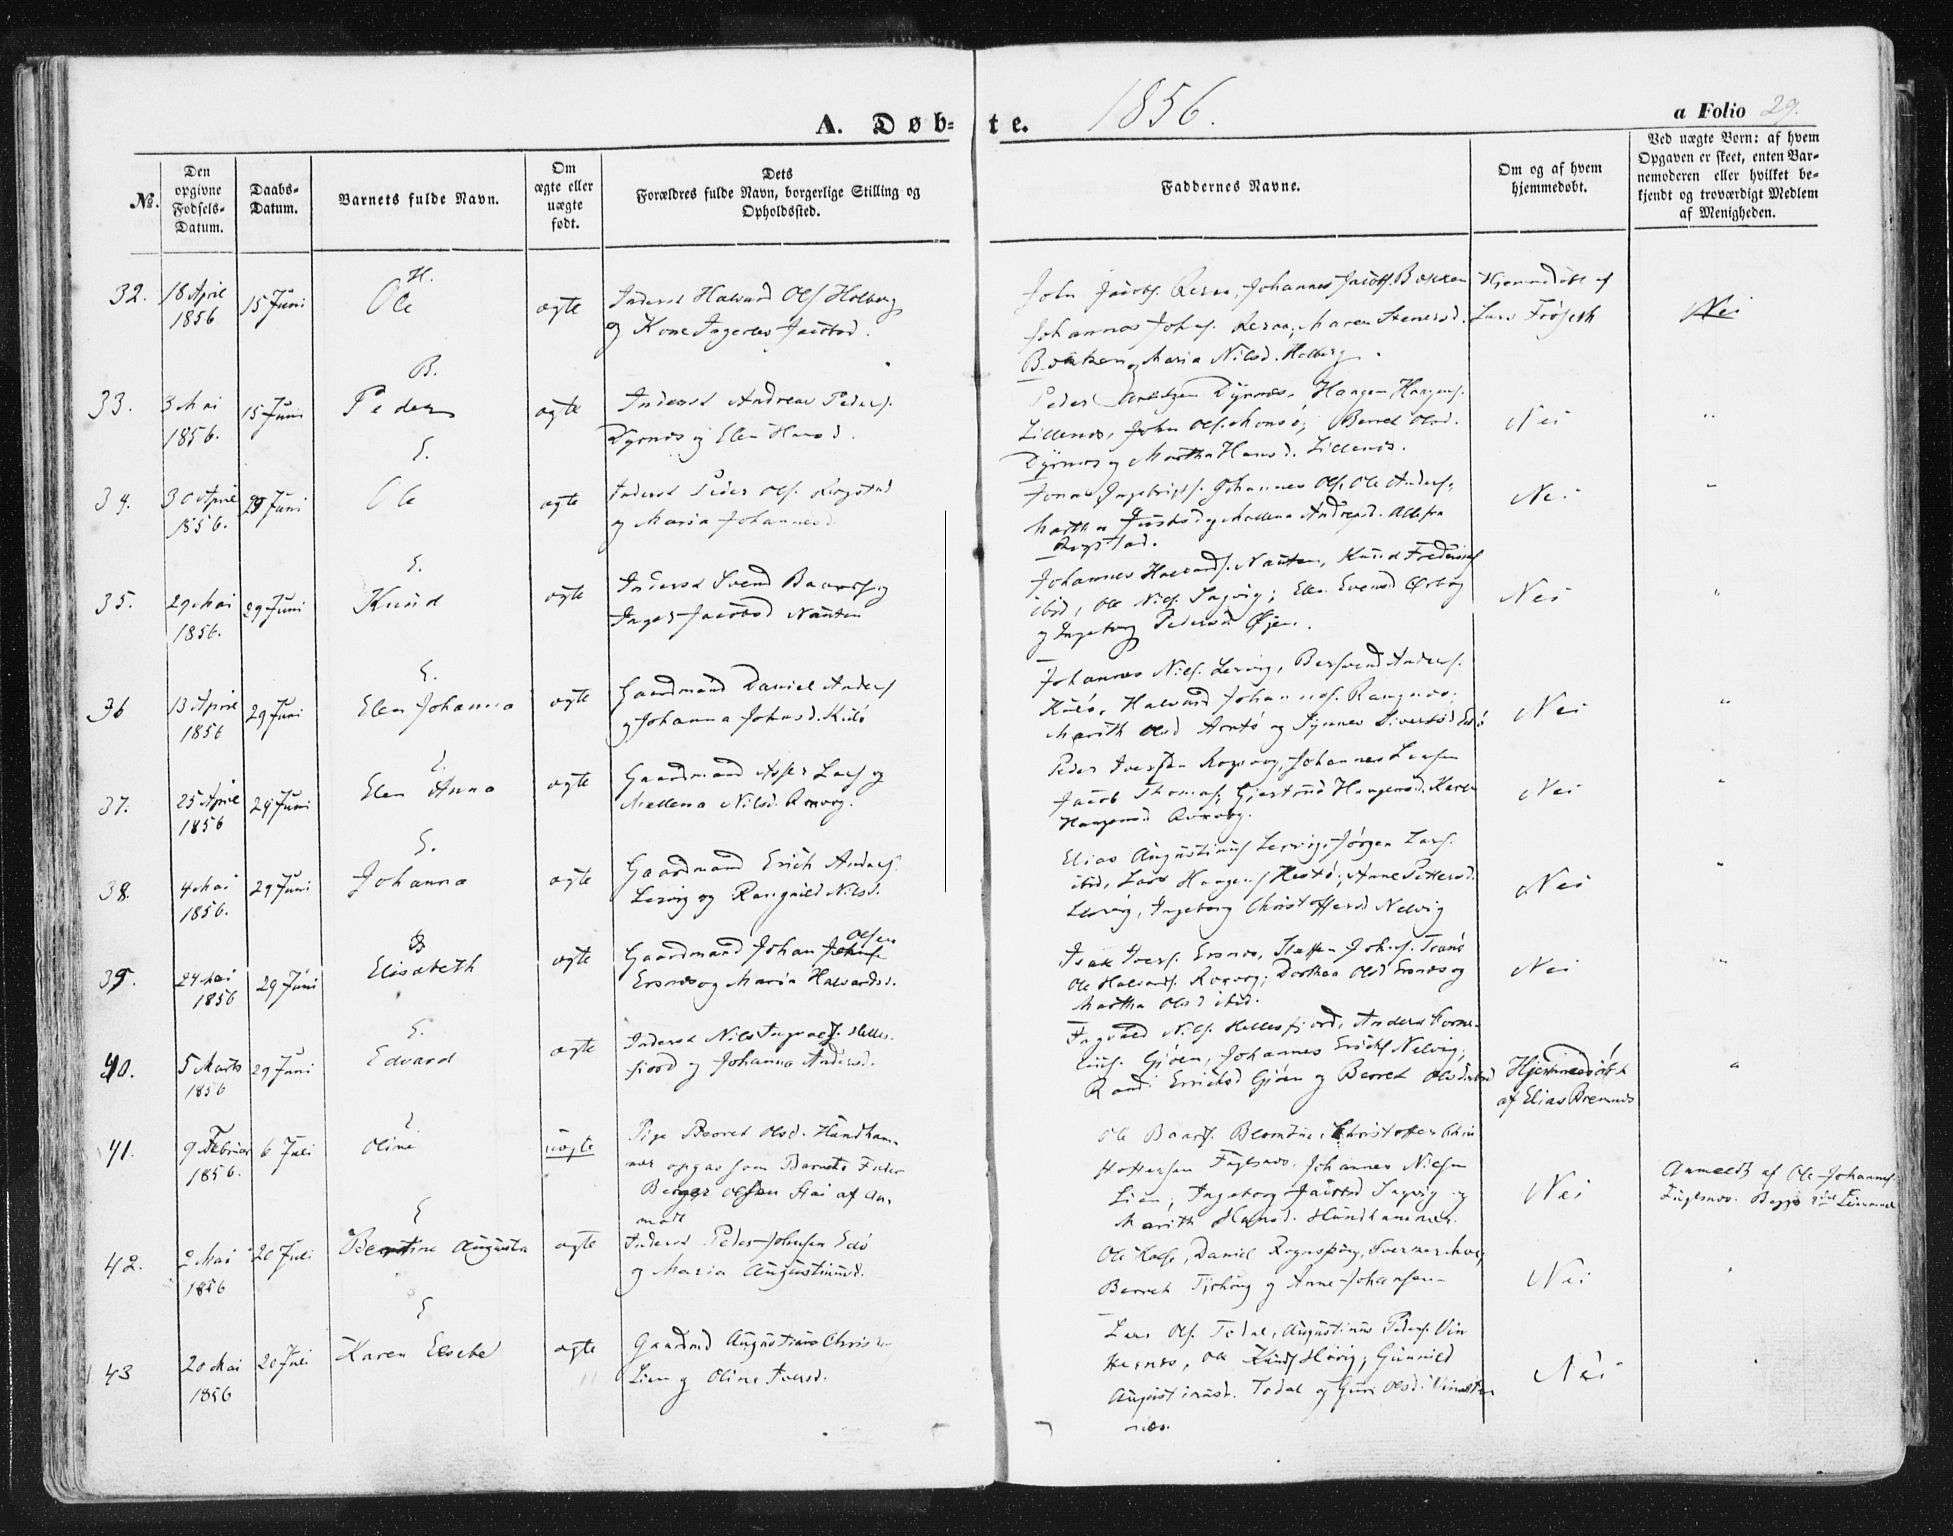 A. Døb-
te.
1856.
a Folio 29.
№.
Den
opgivne
Fødsels-
Datum.
Daabs-
Datum.
Barnets fulde Navn.
Om
ægte eller
uægte
født.
Dets
Forældres fulde Navn, borgerlige Stilling og
Opholdssted.
Faddernes Navne.
Om og af hvem
hjemmedøbt.
Ved uægte Børn: af hvem
Opgaven er skeet, enten Bar-
nemoderen eller hvilket be-
kjendt og troværdigt Medlem
af Menigheden.
H.
32.
18 April
1856
15 Juni
Ole
ægte
Inderst Halvard Ols. Holberg
og Kone Ingeborg Jacobsd.
John Jacobs. Johannes Jacobs. Bakken
Johannes Johns. Maren Steners.
Bakken og Maria Nilsd. Holberg.
Hjemmedøbt af
Lars Frøseth
Nei
B.
33.
3 Mai
1856.
15 Juni
Peder
ægte
Inderst Andreas Peders.
Dyrnes og Elen Hansd.
Peder Dyrnes, Haagen Haagens.
Lillenes, John Ols. Monsø, Berret Olsd.
Dyrnes og Martha Hansd. Lillenes.
Nei
"
E.
34.
30 April
1856.
29 Juni
Ole
ægte
Inderst Peder Ols. Rogstad
og Maria Johannesd.
Jonas Ingebrigts. Johannes Ols. Ole Anders.
Martha og Mallena Andreasd. Alle fra
Rogstad.
Nei
"
E.
35.
29 Mai
1856.
29 Juni
Knud
ægte
Inderst Svend Baards. og
Inger Jacobsd Nauten
Johannes Halvards. Nauten, Knud Fredriks.
ibid, Ole Nils. Ingvig; Elen Evensd
og Ingeborg Pedersd Øjen.
Nei
"
E.
36
13 April
1856
29 Juni
Elen Johanna
ægte
Gaardmand Daniel Anders
og Johanna Johnsd. Kulø
Johannes Nils. Lervig, Anders.
Kulø, Halvard Johannes. Rangnes;
Marith Olsd og Synnev Siversd Edø
Nei
"
E.
37.
25 April
1856
29 Juni
Elen Anna
ægte
Gaardmand Asser Lars og
Mallena Nilsd.
Peder Iversen Johannes Larsen
Jacob Thomas; Gjertrud Haagensd. Karen
Haagensd
Nei
"
E.
38.
4 Mai
1856.
29 Juni
Johanna
ægte
Gaardmand Erich Anders.
Lervig og Rangnild Nilsd.
Elias Augustinus Lervig, Jørgen Lars.
ibid, Lars Haagens Anne Pettersd.
Lervig, Ingeborg Christoffersd Nelvig
Nei
"
B
39.
24 Mai
1856
29 Juni
Elisabeth
ægte
Olsen
Gaardmand Johan
Ersnes og Maria Halvardsd.
Isak Ivers. Ersnes, Steffen Johns.
Ole Halvards. Dorthea Olsd Ersnes og
Martha Olsd ibid.
Nei
"
E.
40.
5 Marts
1856
29 Juni
Edvard
ægte
Inderst Nils Ingvalds. Helles-
fjord og Johanna Andersd.
Ingvald Nils. Hellesfjord, Anders Corne-
lius. Gjøen, Johannes Erichs Nelvig,
Randi Erichsd Gjøen og Berret Olsd ibid
Hjemmedøbt
af Elias Bremnes
"
E
41.
9 Februar
1856.
6 Juli
Oline
uægte
Pige Berret Olsd. Hundham-
mer opgav som Barnets Fader
Olsen Stai af Aa-
modt
Ole Baards. Christoffer Chri
stoffersen Fuglsnes. Johannes Nielsen
Lien, Ingeborg Jacobsd Ingvig og
Marith Hansd. Hundhammer.
Nei
Anmeldt af Ole Johannes.
Fuglsnes.
E
42.
2 Mai
1856
20 Juli
Berntine Augusta
ægte
Inderst Peder Johnsen Edø
og Maria Augustinusd.
Ole Daniel
Berret og Anne Johansen
Nei
"
E
43
20 Mai
1856
20 Juli
Karen Elsebe
ægte
Gaardmd Augustinus Christ
Lien og Oline Iversd.
Lars Ols. Todal, Augustinus Peders. Vin
sternes, Ole Knuds Gunnild
Augustinusd. Todal og Guri Olsd. Vinster
nes.
Nei